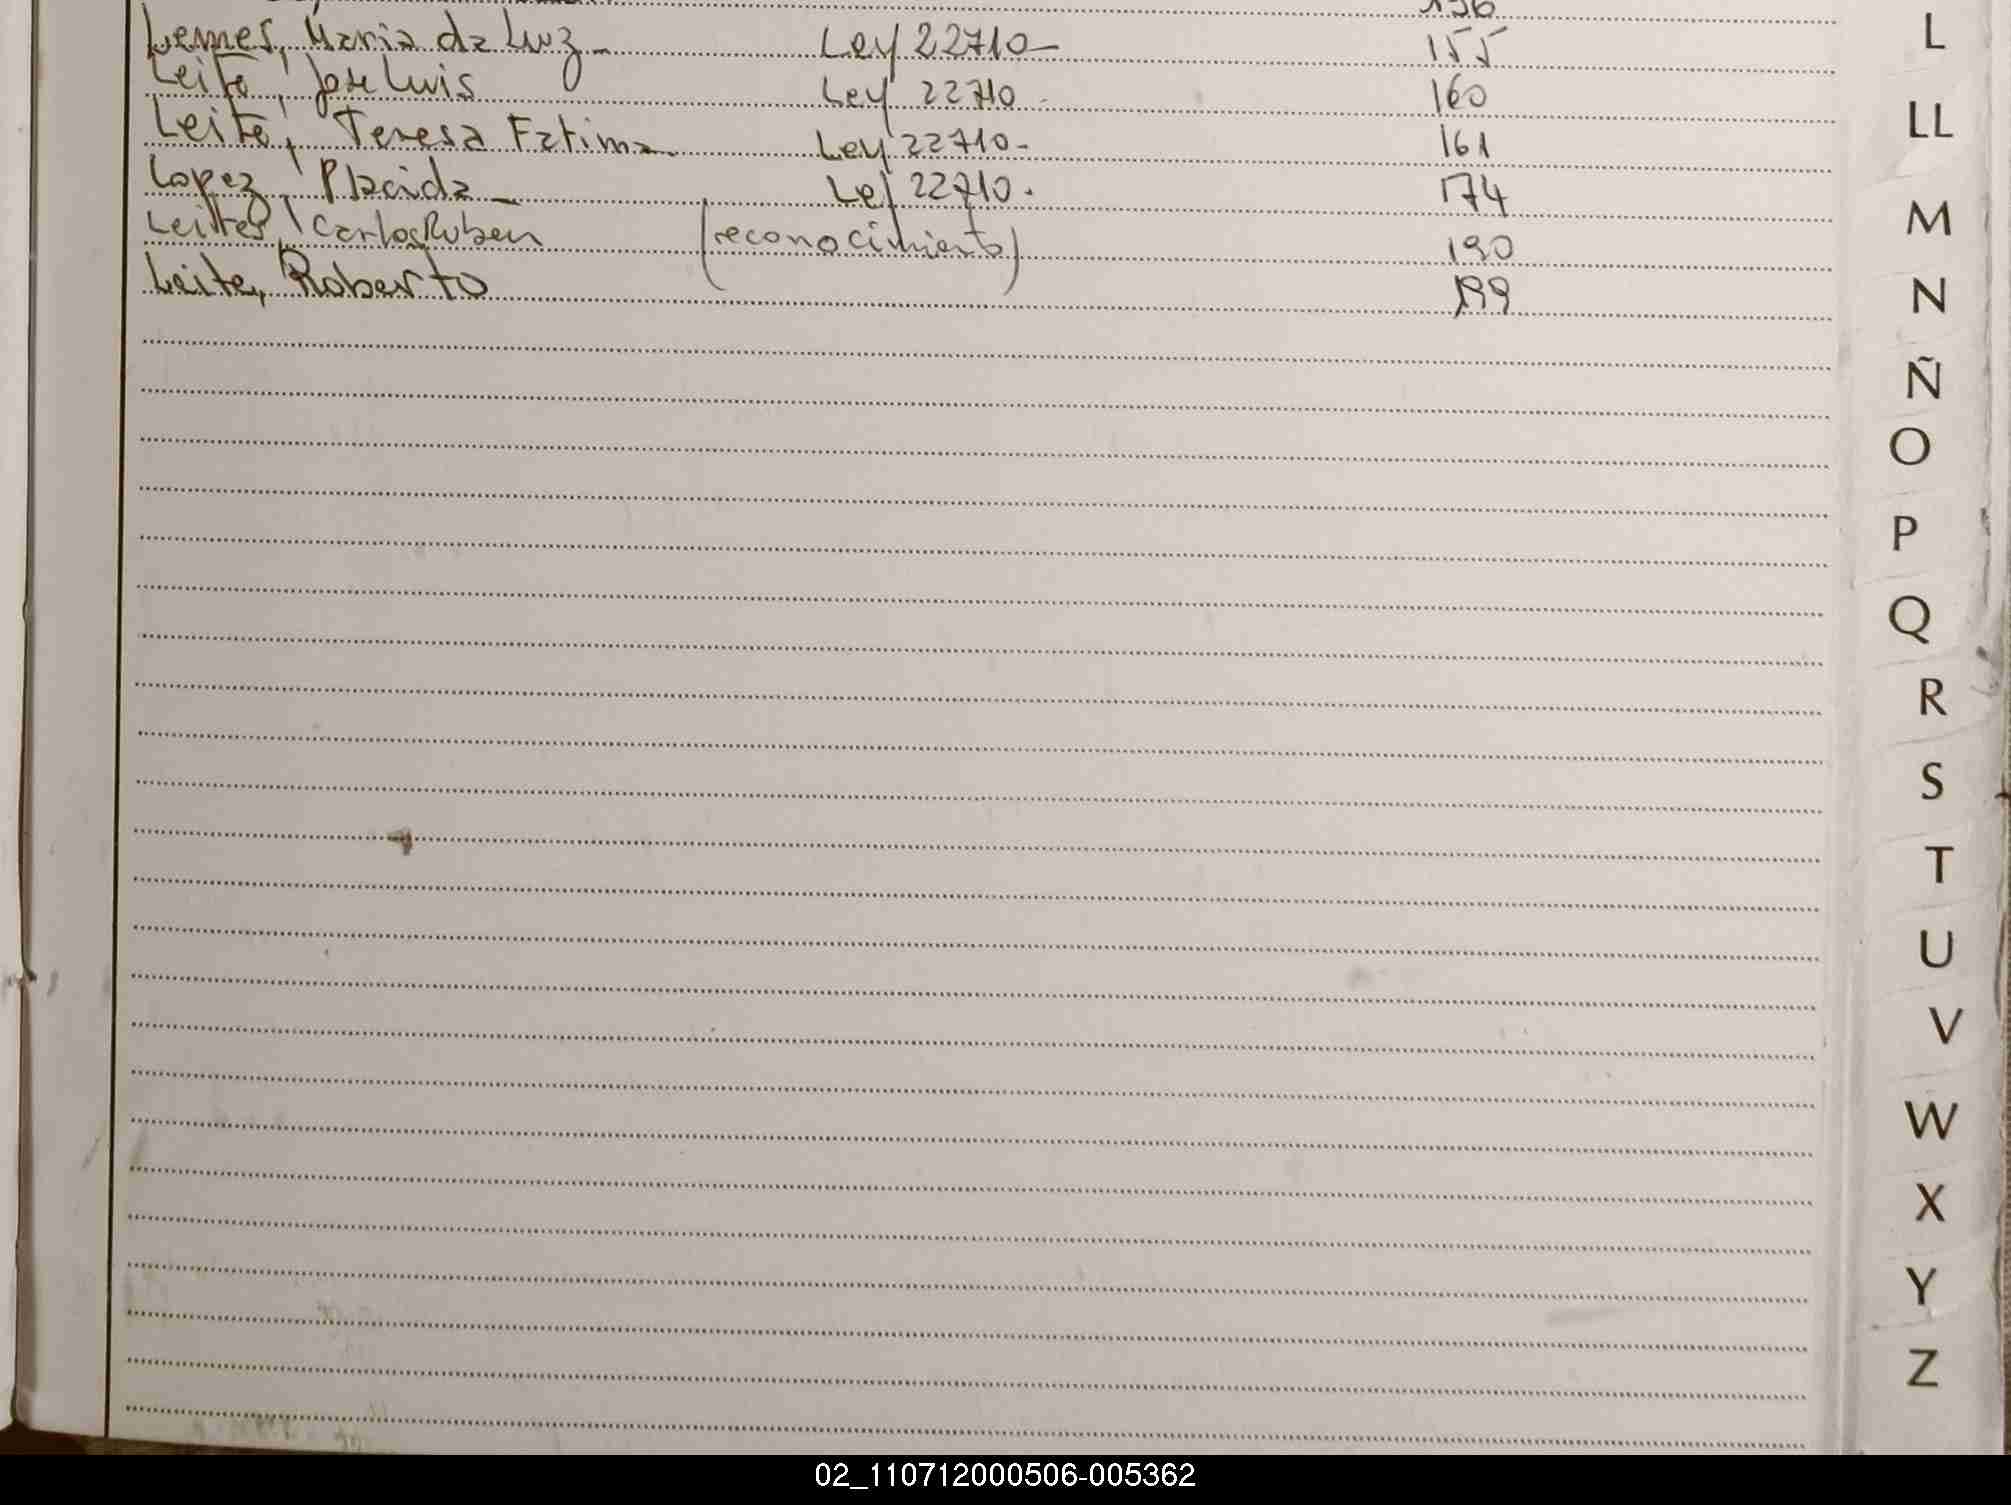 Lemes, Maria da Luz - Ley 22710 - 155
Leite, Jose Luis Ley 22710 - 160
Leite, Teresa Fatima - Ley 22710 - 161
Lopez, Placida - Ley 22710. 174
Leites, Carlos Ruben (reconocimiento) 190
Leite, Roberto 199
L
LL
M
N
Ñ
O
P
Q
R
S
T
U
V
W
X
Y
Z
02_110712000506-005362